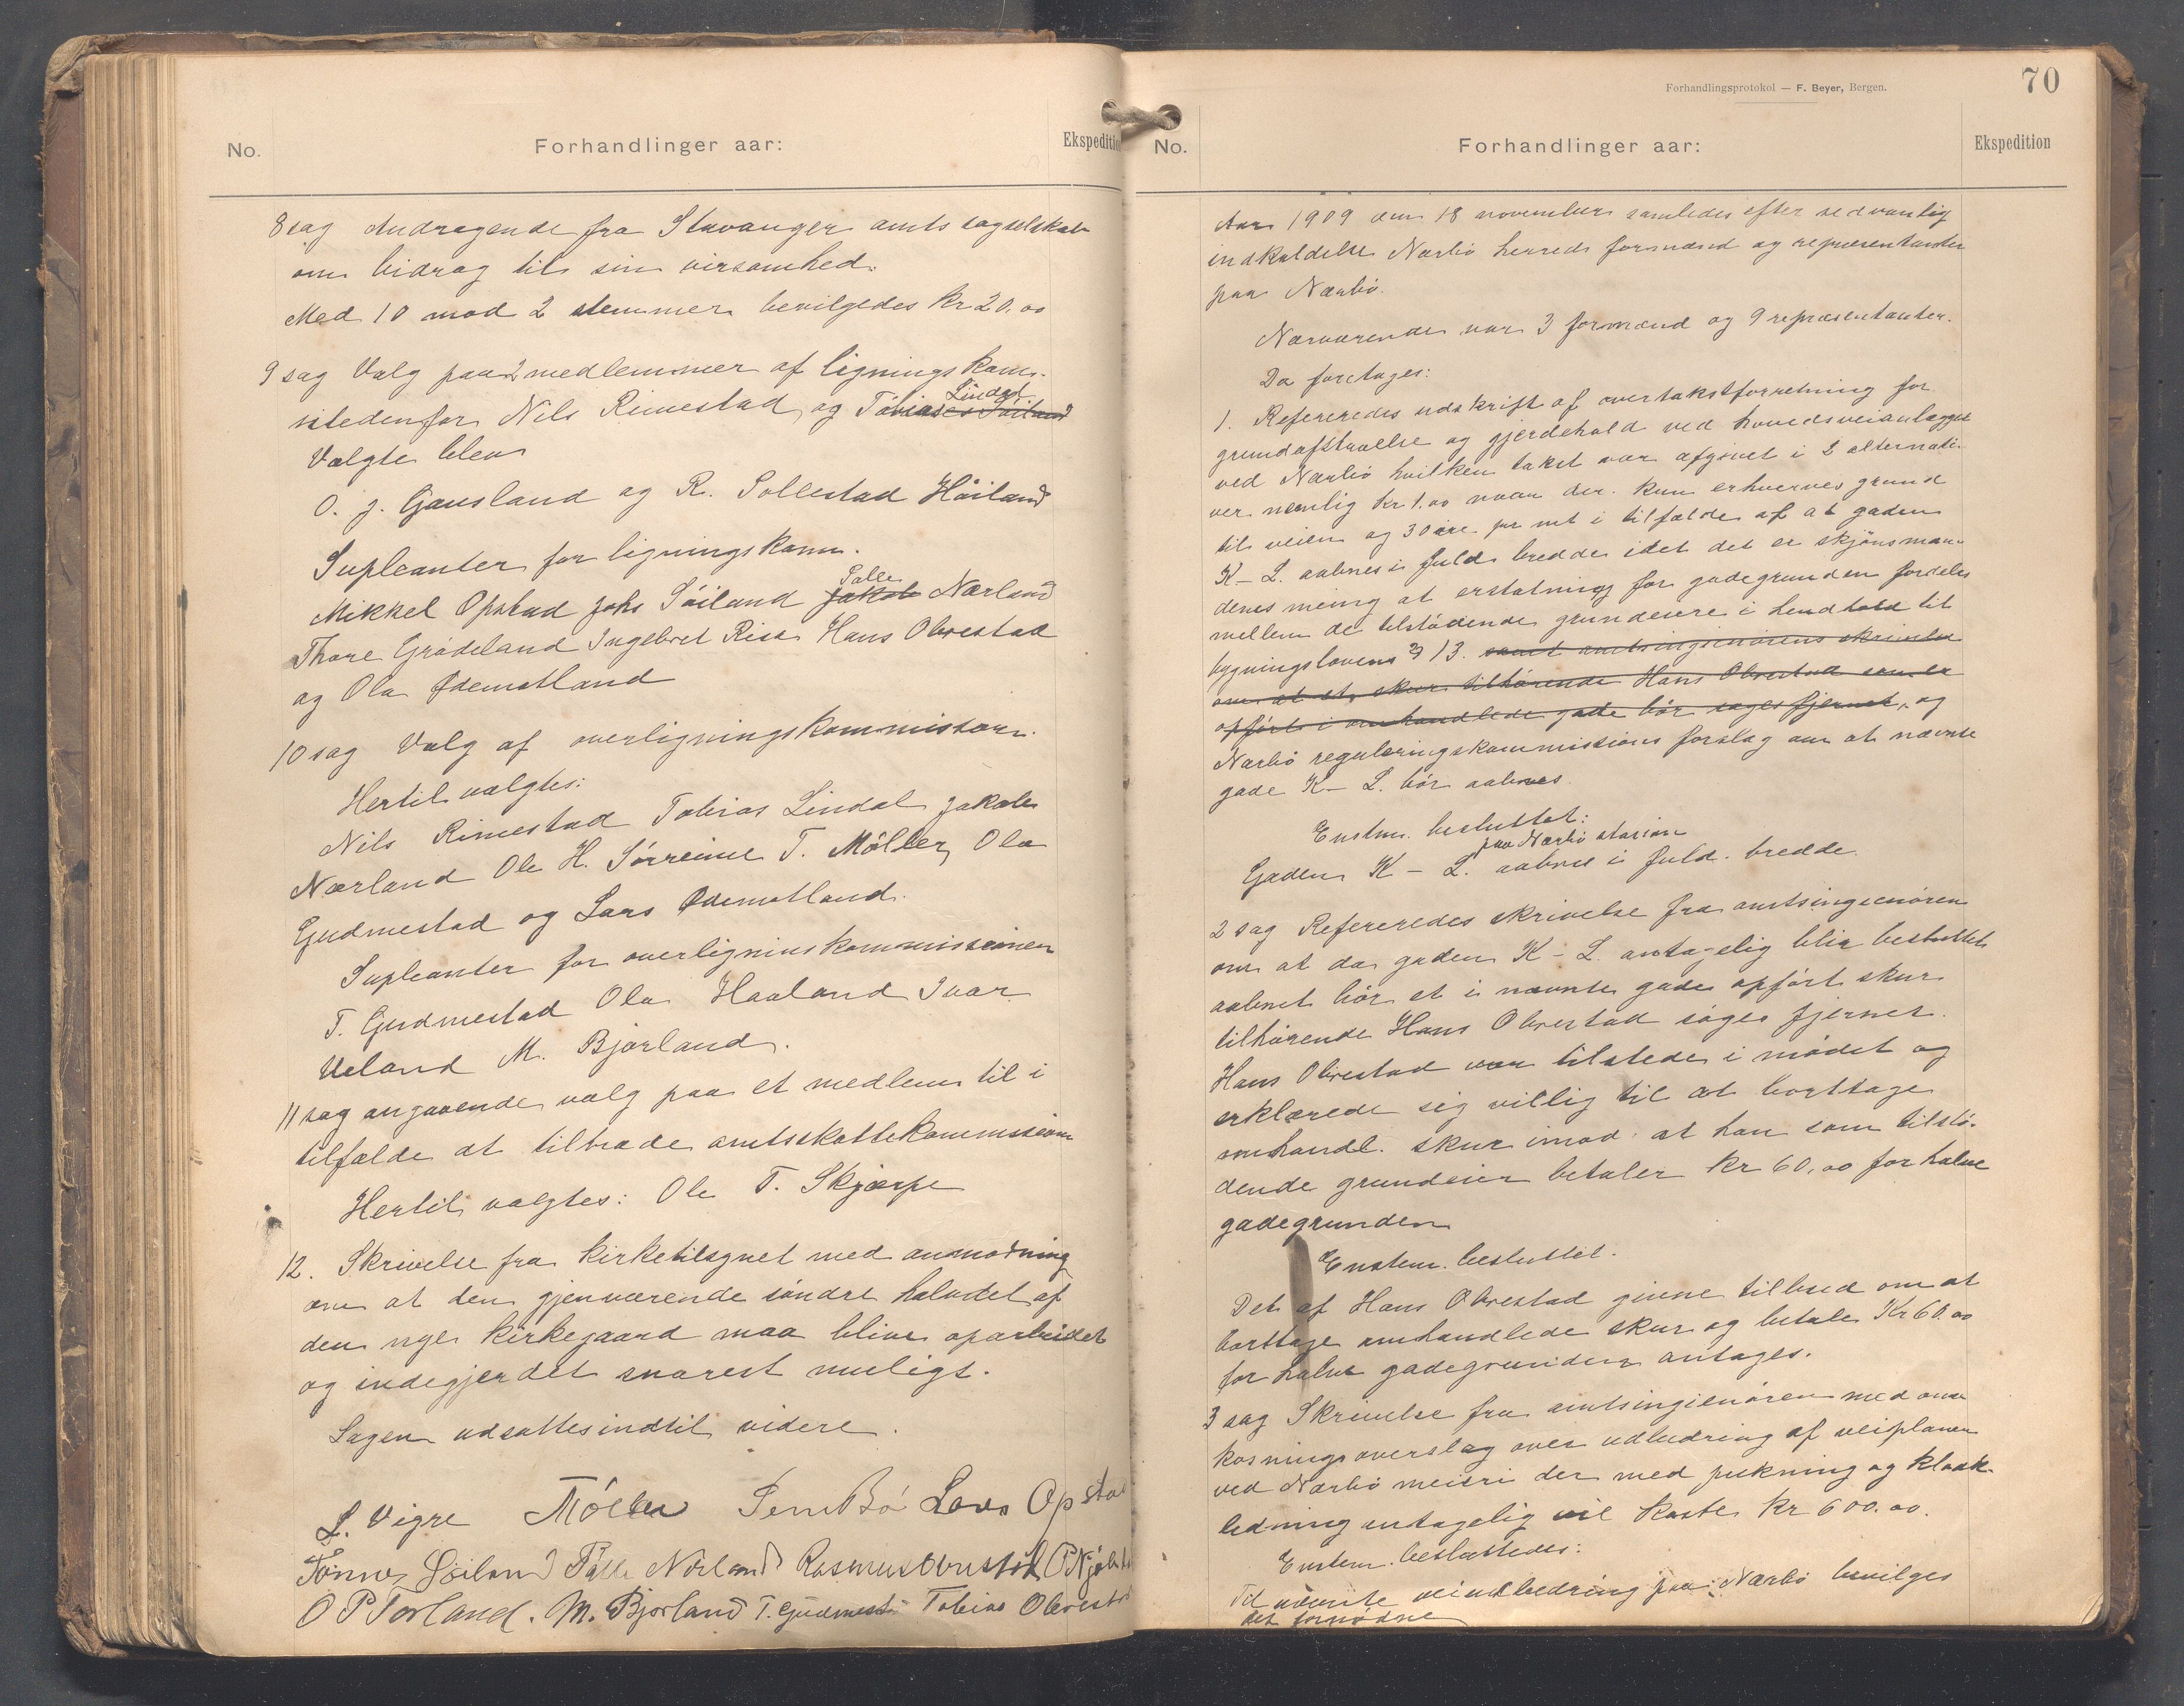 No.
Forhandlinger aar:
Ekspedition
8 sag Andragende fra Stavanger amts sagselskab
om bidrag til sin virsomhed.
Med 10 mod 2 stemmer bevilgedes kr 20.00
9 sag Valg paa 2 medlemmer af ligningskom.
istedenfor Nils Rimestad og Tobias Lindal
Valgte blev
O. J. Gausland og R. Sollestad Håiland
Supleanter for ligningskom.
Mikkel Opstad Johs Söiland Palle Jakob Nærland
Thore Grödeland Ingebret Risa Hans Obrestad
og Ola Ødemotland
10 sag Valg af overligningskommission.
Hertil valgtes:
Nils Rimestad Tobias Lindal Jakob
Nærland Ole H. Sörreime T. Möller, Ola
Gudmestad og Lars Ødemotland.
Supleanter for overligninskommissionen
T. Gudmestad Ola Haaland Ivar
Ueland M. Bjorland.
11 sag angaaende valg paa et medlem til i
tilfælde at tiltræde amtsskattekommssion
Hertil valgtes: Ole T. Skjærpe
12. Skrivelse fra kirketilsynet med anmodning
om at den gjenværende söndre halvdel af
den nye kirkegaard maa blive oparbeidet
og indegjerdet snarest muligt.
Sagen udsattes indtil videre.
L. Vigre TMöller Lars Opstad
Tönnes Söiland Palle Nærland Rasmus Obrestad
O P Torland. M. Bjorland T. Gudmest Tobias Obrestad
Forhandlingsprotokol — F. Beyer, Bergen.
70
No.
Forhandlinger aar:
Ekspedition
Aar 1909 den 18 november samledes efter sedvanlig
indkaldelse Nærbö herreds formænd og repræsentanter
paa Nærbö.
Nærværende var 3 formænd og 9 repræsentanter.
Da foretages:
1. Refereredes udskrift af overtakstforretning for
grundafstaaelse og gjerdehold ved hovedsveianlægget
ved Nærbö hvilken takst var afgivet i 2 alternati-
ver nemlig kr 1.00 naar der kun erhverves grund
til veien og 30 öre pr mt i tilfælde af at gaden
K – L. aabnes i fuld bredde idet det er skjönsmæn-
denes mening at erstatning for gadegrunden fordeles
mellem de tilstödende grundeiere i hendhold til
bygningslovens § 13. samt amtsingeniörens skrivelse
om at et skur tilhörende Hans Obrestad som er
opfört i omhandlede gade bör söges fjernet, og
Nærbö reguleringskommissions forslag om at nævnte
gade K – L. bör aabnes.
Enstem. besluttet:
paa Nærbö station
Gaden K – L. aabnes i fuld bredde.
2 sag Refereredes skrivelse fra amtsingeniören
om at da gaden K – L. antagelig blir besluttet
aabnet bör et i nævnte gade opfört skur
tilhörende Hans Obrestad söges fjernet.
Hans Obrestad var tilstede i mödet og
erklærede sig villig til at borttage
omhandl. skur imod at han som tilstö-
dende grundeier betaler kr 60,00 for halve
gadegrunden
Enstem. besluttet.
Det af Hans Obrestad givne tilbud om at
borttage omhandlede skur og betale Kr 60.00
for halve gadegrunden antages.
3 sag Skrivelse fra amtsingieniören med om
kosningsoverslag over udbedring af veiplanen
ved Nærbö meieri der med pukning og kloak-
ledning antagelig vil koste kr 600.00.
Enstem. besluttedes:
Til nævnte veiudbedring paa Nærbö bevilges
det fornödne